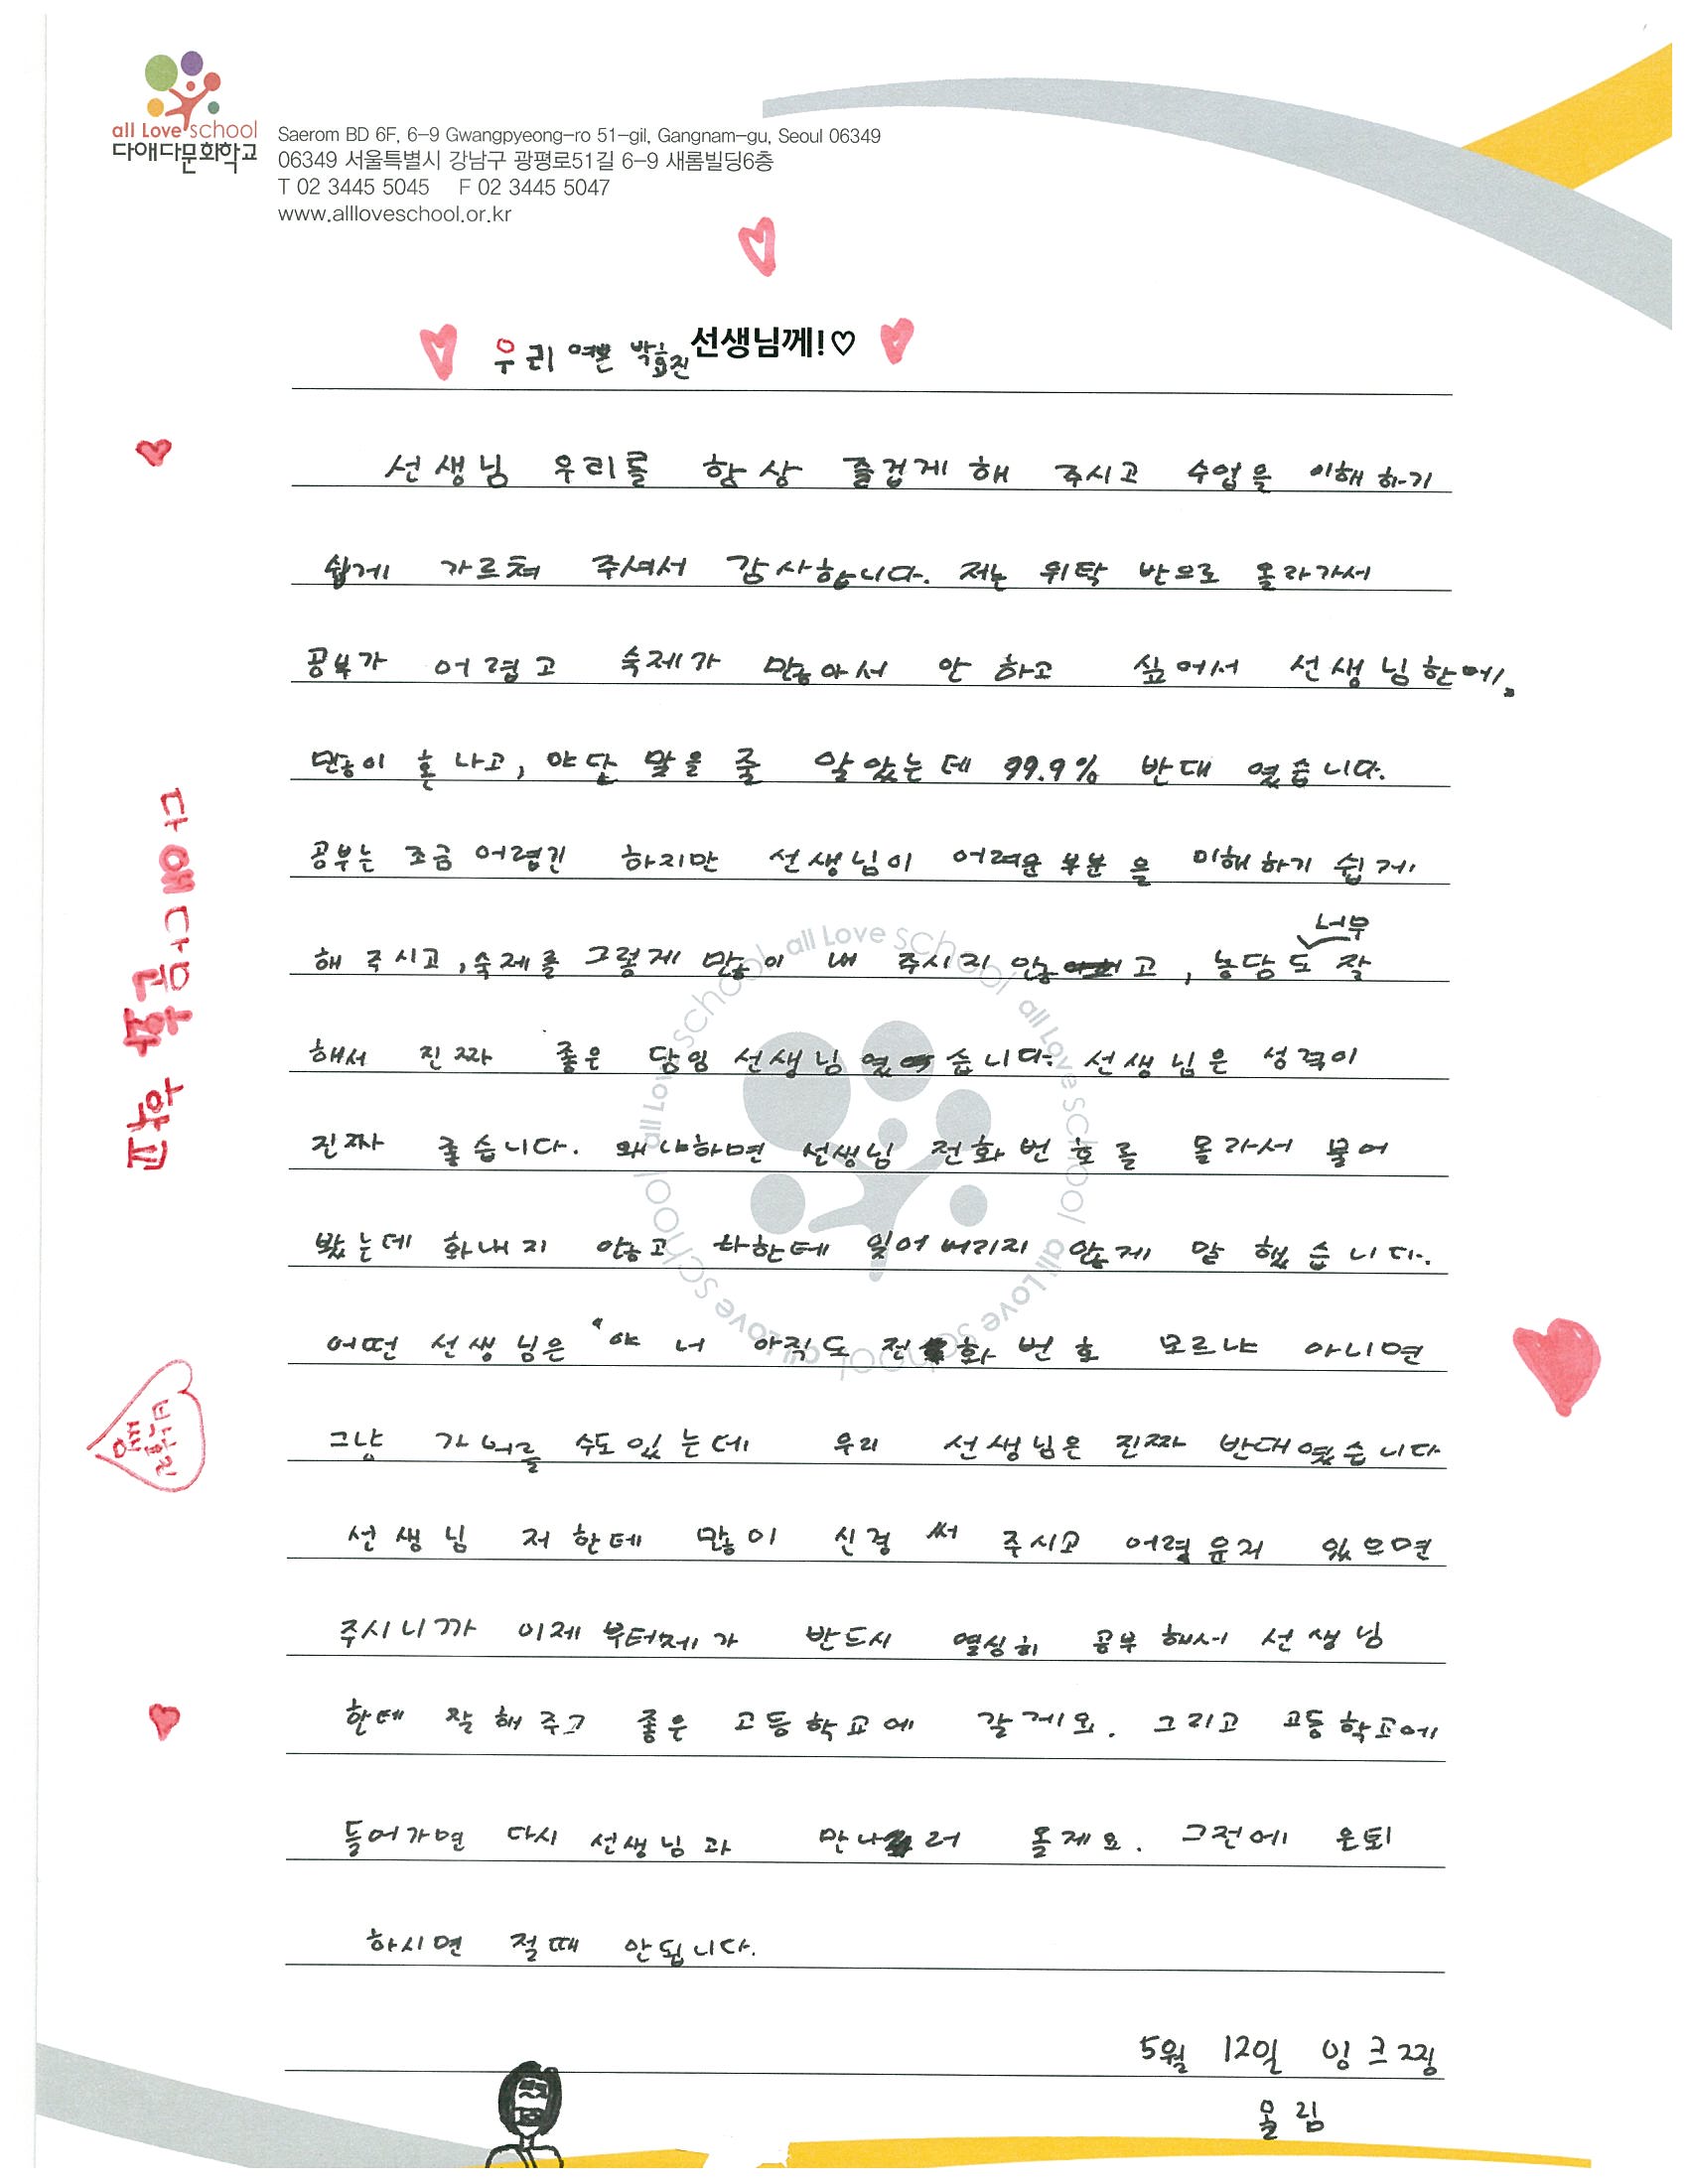 all Love school
다애다문화학교
Saerom BD 6F, 6-9 Gwangpyeong-ro 51-gil, Gangnam-gu, Seoul 06349
06349 서울특별시 강남구 광평로51길 6-9 새롬빌딩6층
T 02 3445 5045 F 02 3445 5047
www.allloveschool.or.kr
우리 예쁜 박효진 선생님께!♡
선생님 우리를 항상 즐겁게 해 주시고 수업을 이해 하기
쉽게 가르쳐 주셔서 감사합니다. 저는 위탁 반으로 올라가서
공부가 어렵고 숙제가 많아서 안 하고 싶어서 선생님한테
많이 혼 나고, 야단 맞을 줄 알았는데 99.9% 반대 였습니다.
공부는 조금 어렵긴 하지만 선생님이 어려운 부분을 이해하기 쉽게
해 주시고, 숙제를 그렇게 많이 내 주시지 않고, 농담도 너무 잘
해서 진짜 좋은 담임 선생님 였습니다. 선생님은 성격이
진짜 좋습니다. 왜냐하면 선생님 전화 번호를 몰라서 물어
봤는데 화내지 않고 나한테 잊어버리지 않게 말 했습니다.
어떤 선생님은 "야 너 아직도 전화 번호 모르냐 아니면
그냥 가 버릴 수도 있는데 우리 선생님은 진짜 반대였습니다
선생님 저 한테 많이 신경 써 주시고 있으면
주시니까 이제 부터 제가 반드시 열심히 공부 해서 선생님
한테 잘 해 주고 좋은 고등학교에 갈게요. 그리고 고등학교에
들어가면 다시 선생님과 만나러 올게요. 그전에 은퇴
하시면 절때 안됩니다.
5월 12일 잉크찡
올림
다애다문화학교
all Love school all Love school all Love school all Love school all Love school